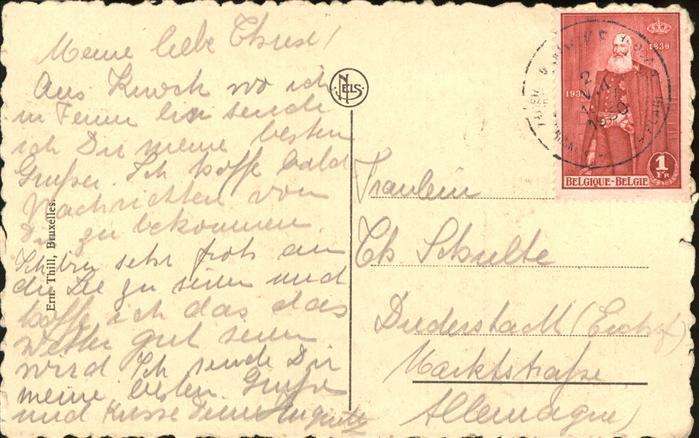 Meine liebe Thresl!
Aus Knock wo ich
in Ferien bin sende
ich Dir meine besten
Grüße. Ich hoffe bald
Nachrichten von
Dir zu bekommen.
Ich bin sehr froh an
die See zu seien und
hoffe ich das das
Wetter gut seien
wird. Ich sende Dir
meine besten Grüße
und Küsse Deine Auguste
NELS
Ern. Thill, Bruxelles.
1930
1 Fr
BELGIQUE-BELGIE
Fräulein
Th Schulte
Duderstadt (Eichsf)
Marktstraße
Allemagne)